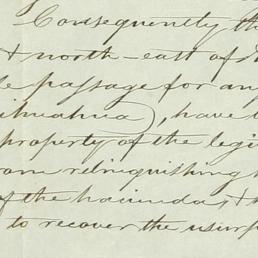 Consequently th
& north-east of
le passage for an
ihuahua), have
property of the legi
rom relinquishing
of the hacienda, &
to recover the usurp